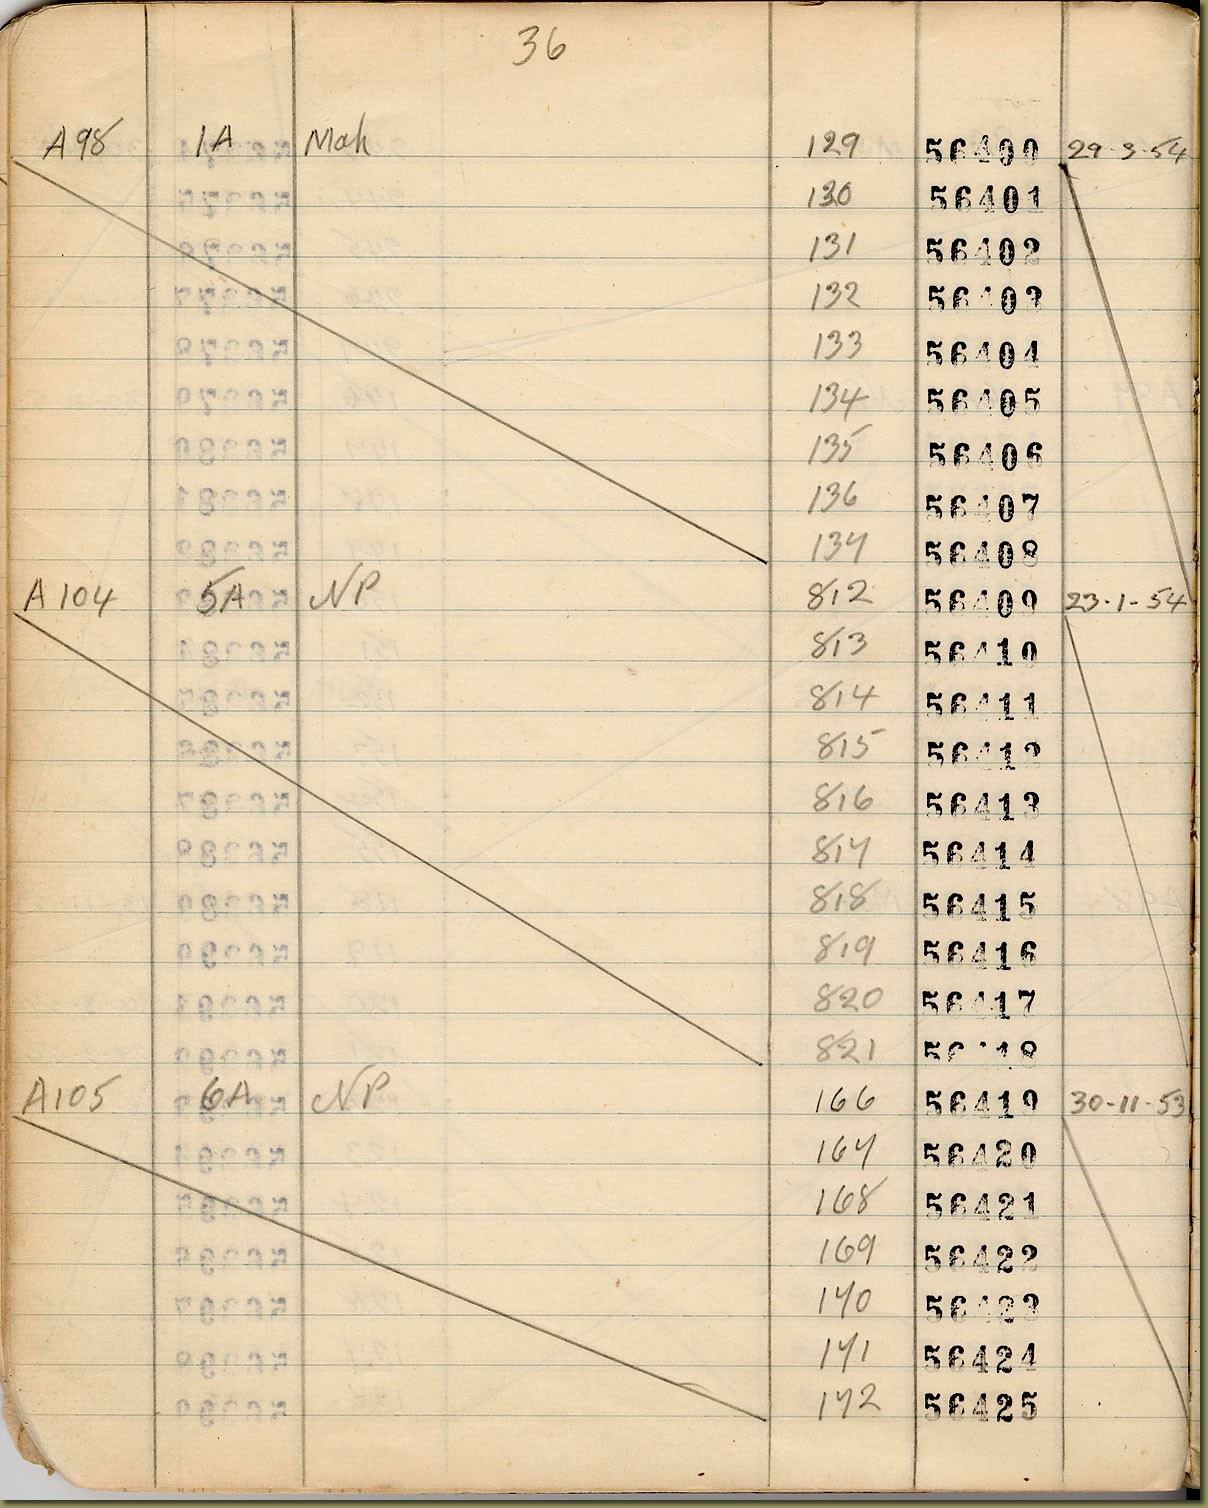 36
A98 1A Mah 129 56400 29-3-54
130 56401
131 56402
132 56403
133 56404
134 56405
135 56406
136 56407
137 56408
A104 5A NP 812 56409 23-1-54
813 56410
814 56411
815 56412
816 56413
817 56414
818 56415
819 56416
820 56417
821 56418
A105 6A NP 166 56419 30-11-53
167 56420
168 56421
169 56422
170 56423
171 56424
172 56425